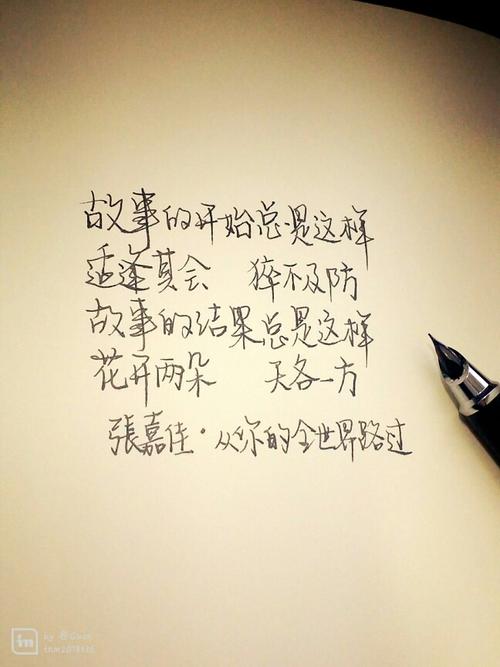 故事的开始总是这样
适逢其会 猝不及防
故事的结果总是这样
花开两朵 天各一方
張嘉佳·从你的全世界路过
in by @Gwen